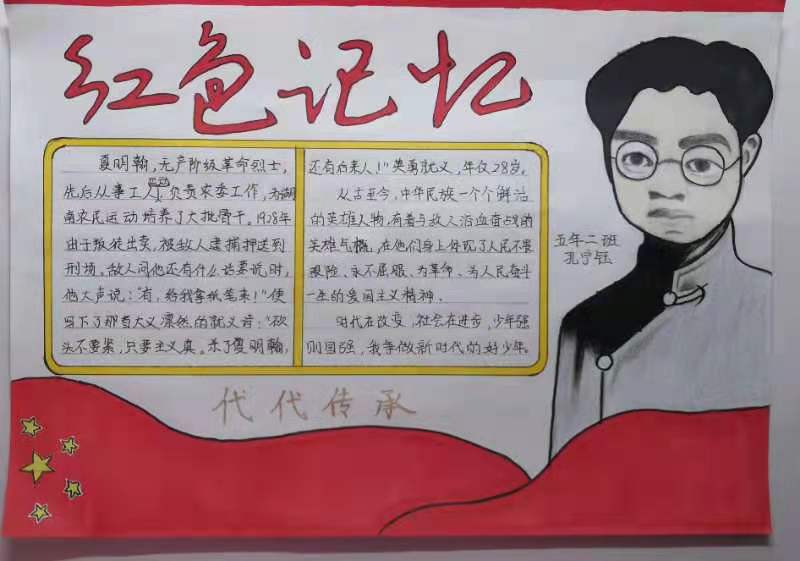 红色记忆
夏明翰，无产阶级革命烈士，
先后从事工人，负责农委工作，为湖
南农民运动培养了大批骨干。1928年
由于叛徒出卖，被敌人逮捕押送到
刑场。敌人问他还有什么话要说时，
他大声说：“有，给我拿纸笔来！”便
写下了那首大义凛然的就义诗：“砍
头不要紧，只要主义真。杀了夏明翰，
还有后来人！”英勇就义，年仅28岁。
从古至今，中华民族一个个鲜活
的英雄人物，有着与敌人浴血奋战的
英雄气概，在他们身上体现了人民不畏
艰险、永不屈服、为革命、为人民奋斗
一生的爱国主义精神。
时代在改变，社会在进步，少年强
则国强，我争做新时代的好少年。
五年二班
孔宁钰
代代传承